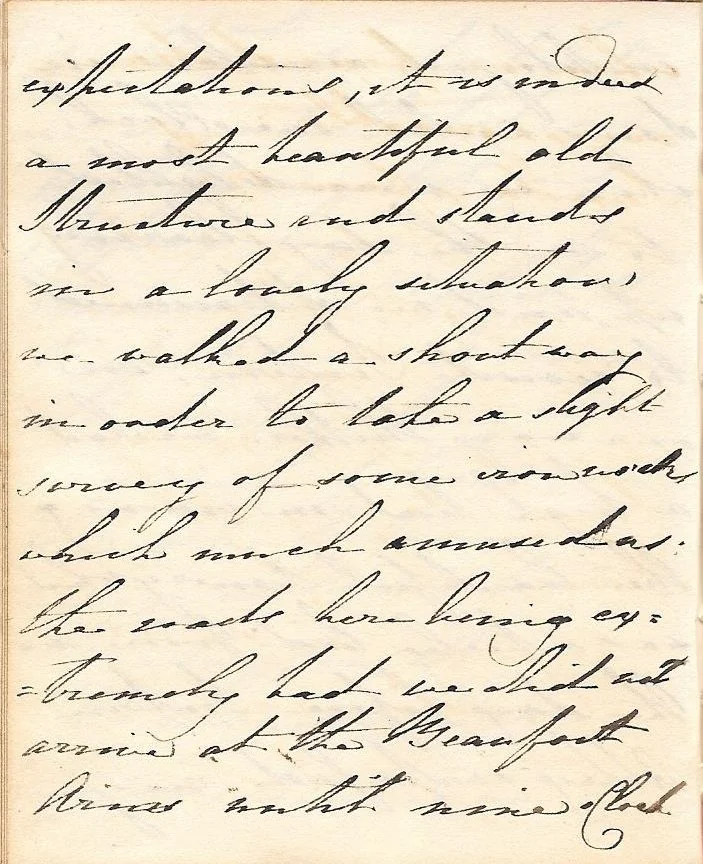 expectations, it is indeed
a most beautiful old
Structure and stands
in a lovely situation,
we walked a short way
in order to take a slight
survey of some iron works
which much amused us.
the roads here being ex=
=tremely bad we did not
arrive at the Beaufort
Arms until nine o'Clock